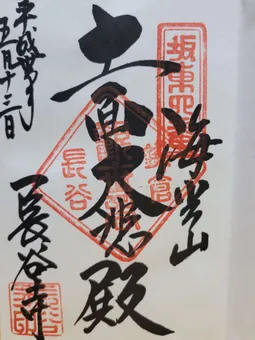 坂東四番
海光山
十一面大悲殿
鎌倉
長谷
平成
五月十三日
長谷寺